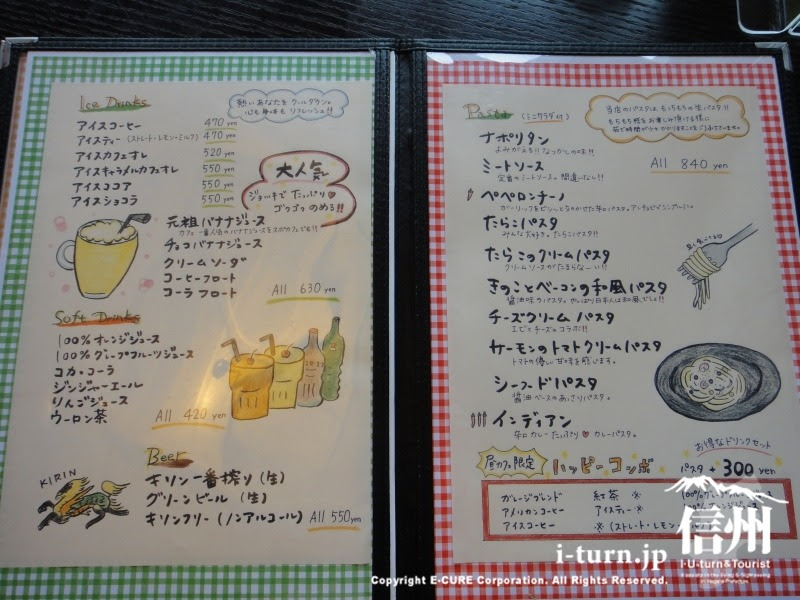 Ice Drinks
熱いあなたを クールダウン。
心も身体も リフレッシュ!!
アイスコーヒー 470 yen
アイスティー (ストレート・レモン・ミルク) 470 yen
アイスカフェオレ 520 yen
アイスキャラメルカフェオレ 550 yen
アイスココア 550 yen
アイスショコラ 550 yen
大人気
ジョッキで たっぷり
ゴクゴク のめる!!
元祖バナナジュース
チョコバナナジュース
クリームソーダ
コーヒーフロート
コーラフロート
All 630 yen
Soft Drinks
100% オレンジジュース
100% グレープフルーツジュース
コカ・コーラ
ジンジャーエール
りんごジュース
ウーロン茶
All 420 yen
Beer
KIRIN
キリン一番搾り (生)
グリーンビール (生)
キリンフリー (ノンアルコール) All 550 yen
Pasta (ミニサラダ付)
当店のパスタは、もっちもちの生パスタ!!
ナポリタン
よみがえる!! なつかしの味!!
All 840 yen
ミートソース
定番のミートソース。間違いなし!!
ペペロンチーノ
たらこパスタ
みんな大好き。たらこパスタ!!
たらこのクリームパスタ
クリームソースがたまらなーい!!
きのことベーコンの和風パスタ
醤油味のパスタ。やっぱり日本人は和風でしょ!!
チーズクリームパスタ
エビとチーズのコラボ!!
サーモンのトマトクリームパスタ
トマトの優しい甘味を感じます。
シーフードパスタ
醤油ベースのあっさりパスタ。
インディアン
辛口カレーたっぷり カレーパスタ。
お得なドリンクセット
昼カフェ限定 ハッピーコンボ パスタ + 300 yen
ガレージブレンド 紅茶 ※
アメリカンコーヒー アイスティー ※
アイスコーヒー ※ (ストレート・レモン
信州
i-turn.jp
I・U-turn&Tourist
Copyright E-CURE Corporation. All Rights Reserved.